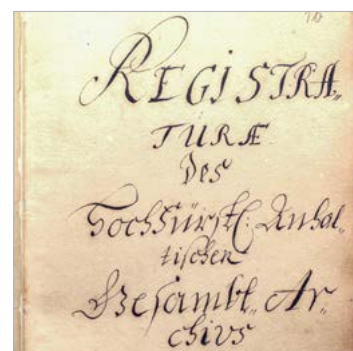 REGISTRA„
TURÆ
des
Hochfürstl: Anhal„
tischen
Gesambt„ Ar„
chivs